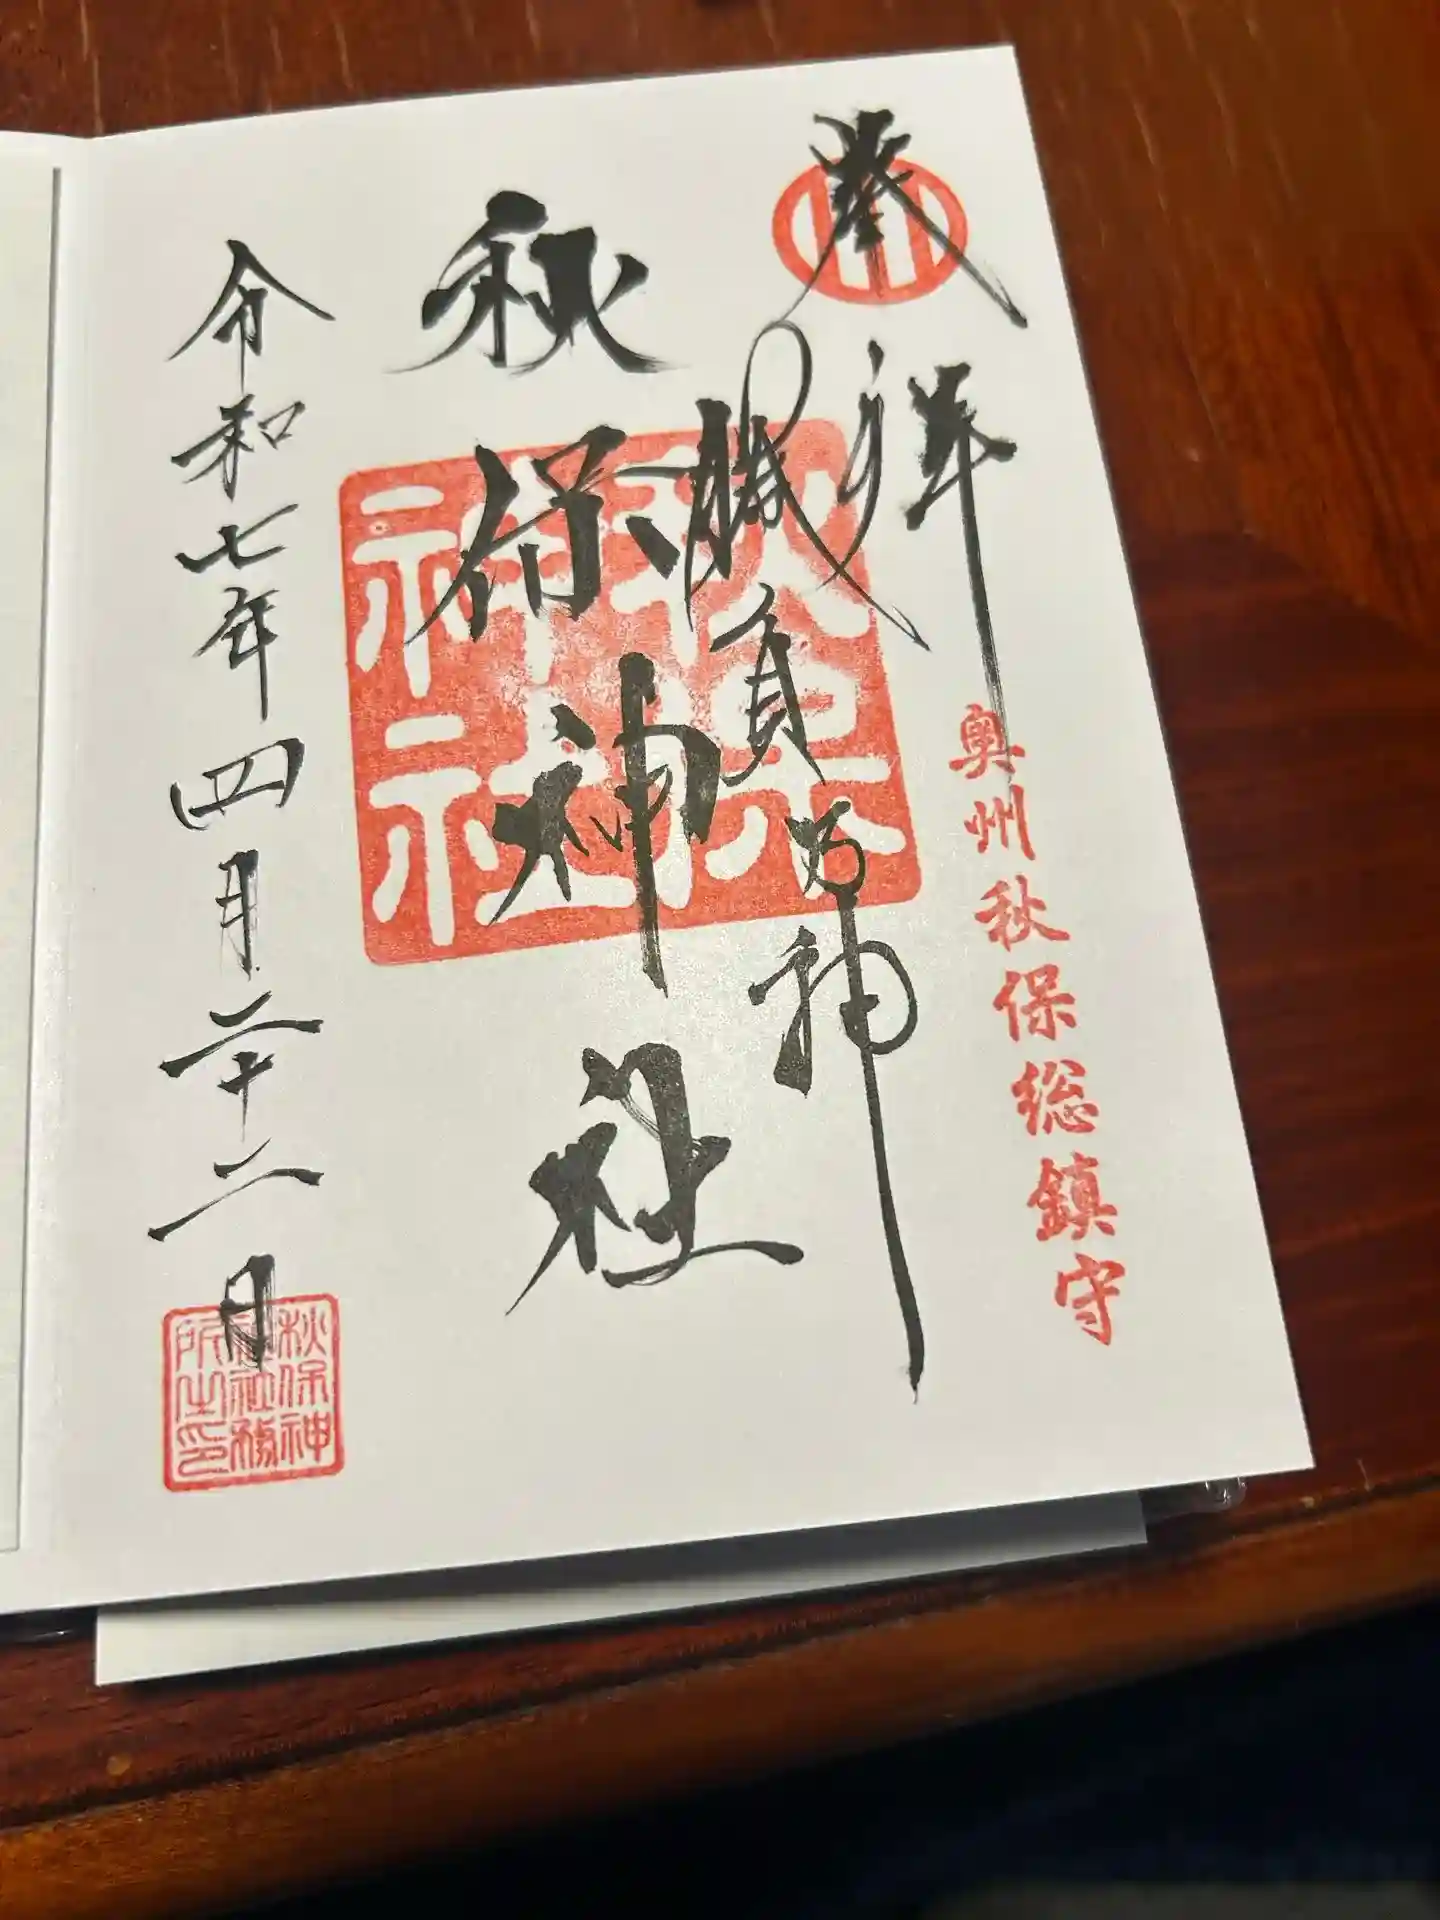 奉拝
奥州秋保総鎮守
勝負の神
秋保神社
秋保神社
令和七年四月二十二日
秋保神社社務所之印